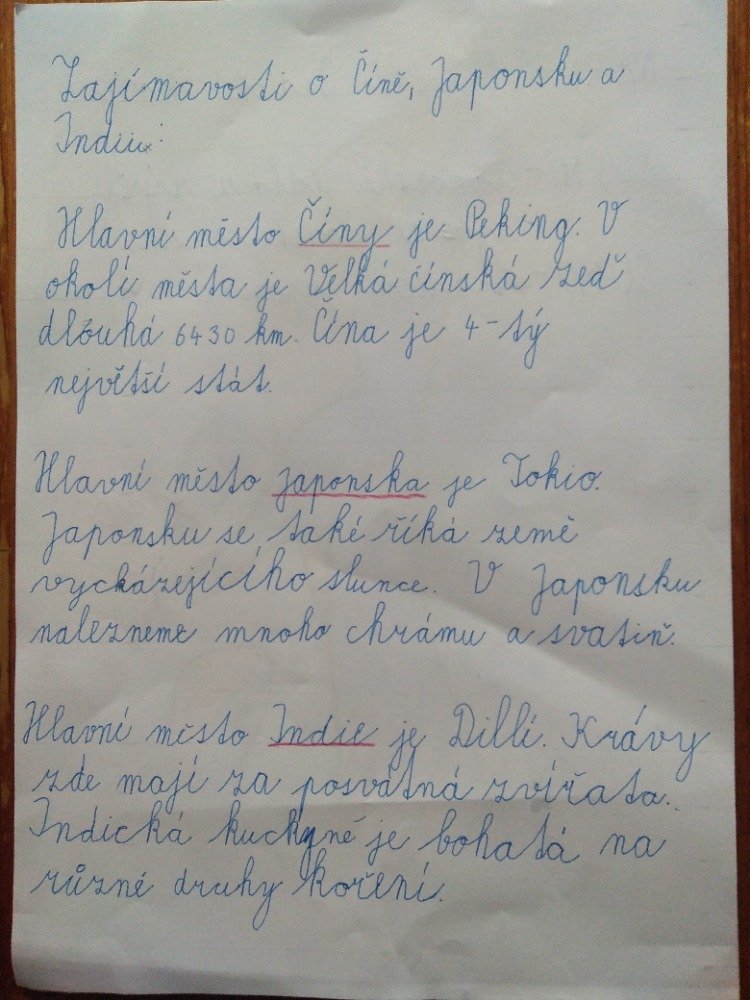 Zajímavosti o Číně, Japonsku a
Indii:
Hlavní město Číny je Peking. V
okolí města je Velká čínská zeď
dlouhá 6430 km. Čína je 4-tý
největší stát.
Hlavní město Japonska je Tokio.
Japonsku se také říká země
vycházejícího slunce. V Japonsku
nalezneme mnoho chrámu a svatiň.
Hlavní město Indie je Dillí. Krávy
zde mají za posvátná zvířata.
Indická kuchyně je bohatá na
různé druhy koření.